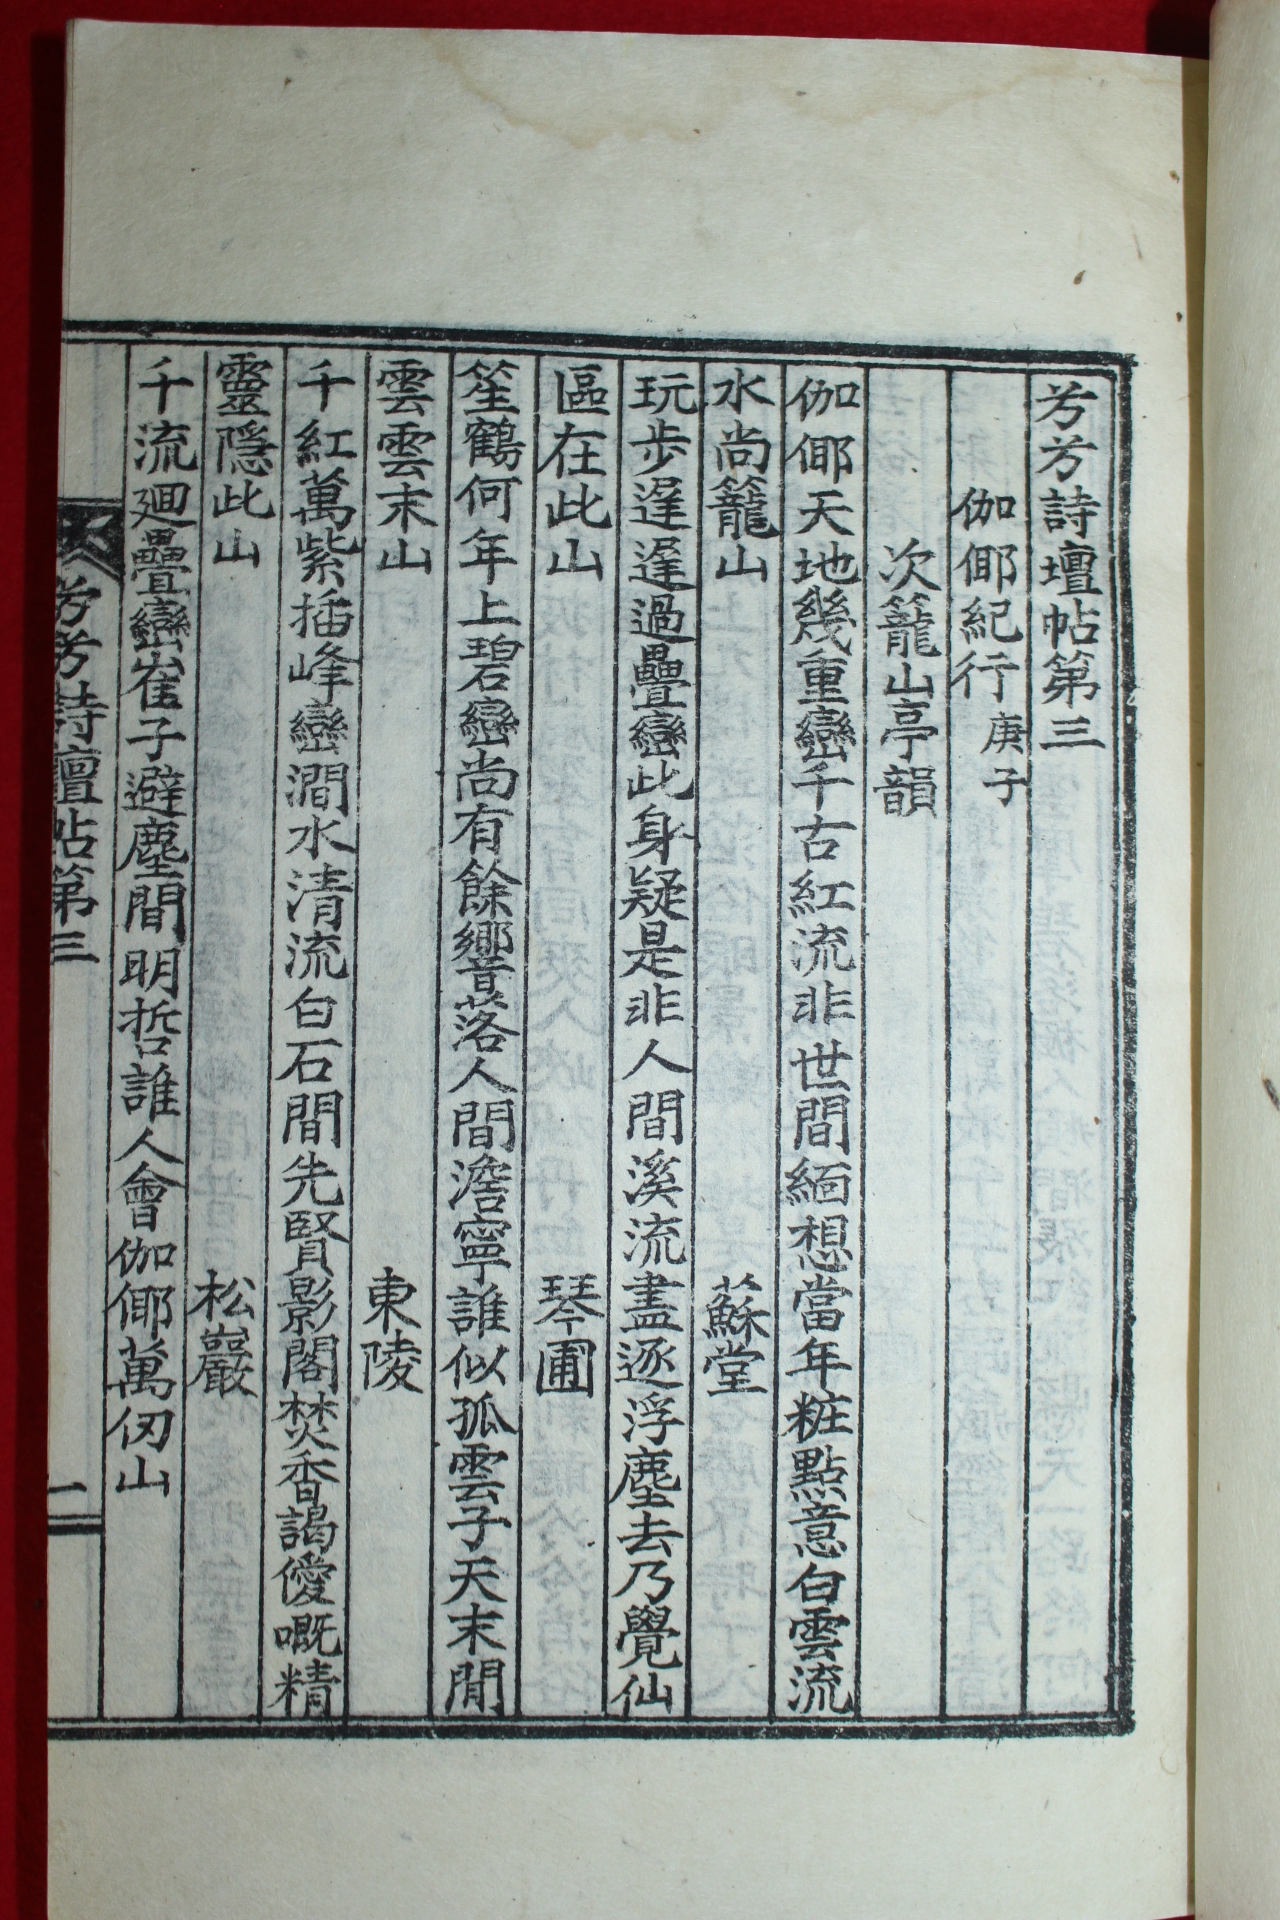 芳芳詩壇帖第三
伽倻紀行 庚子
次籠山亭韻
伽倻天地幾重巒千古紅流非世間緬想當年粧點意白雲流
水尚籠山 蘇堂
玩步遲遲過疊巒此身疑是非人間溪流盡逐浮塵去乃覺仙
區在此山 琴圃
笙鶴何年上碧巒尚有餘響落人間澹寧誰似孤雲子天末閒
雲雲末山 東陵
千紅萬紫揷峰巒澗水清流白石間先賢影閣焚香謁僾嘅精
靈隱此山 松巖
千流廻疊巒崔子避塵間明哲誰人會伽倻萬仞山
芳芳詩壇帖第三
一